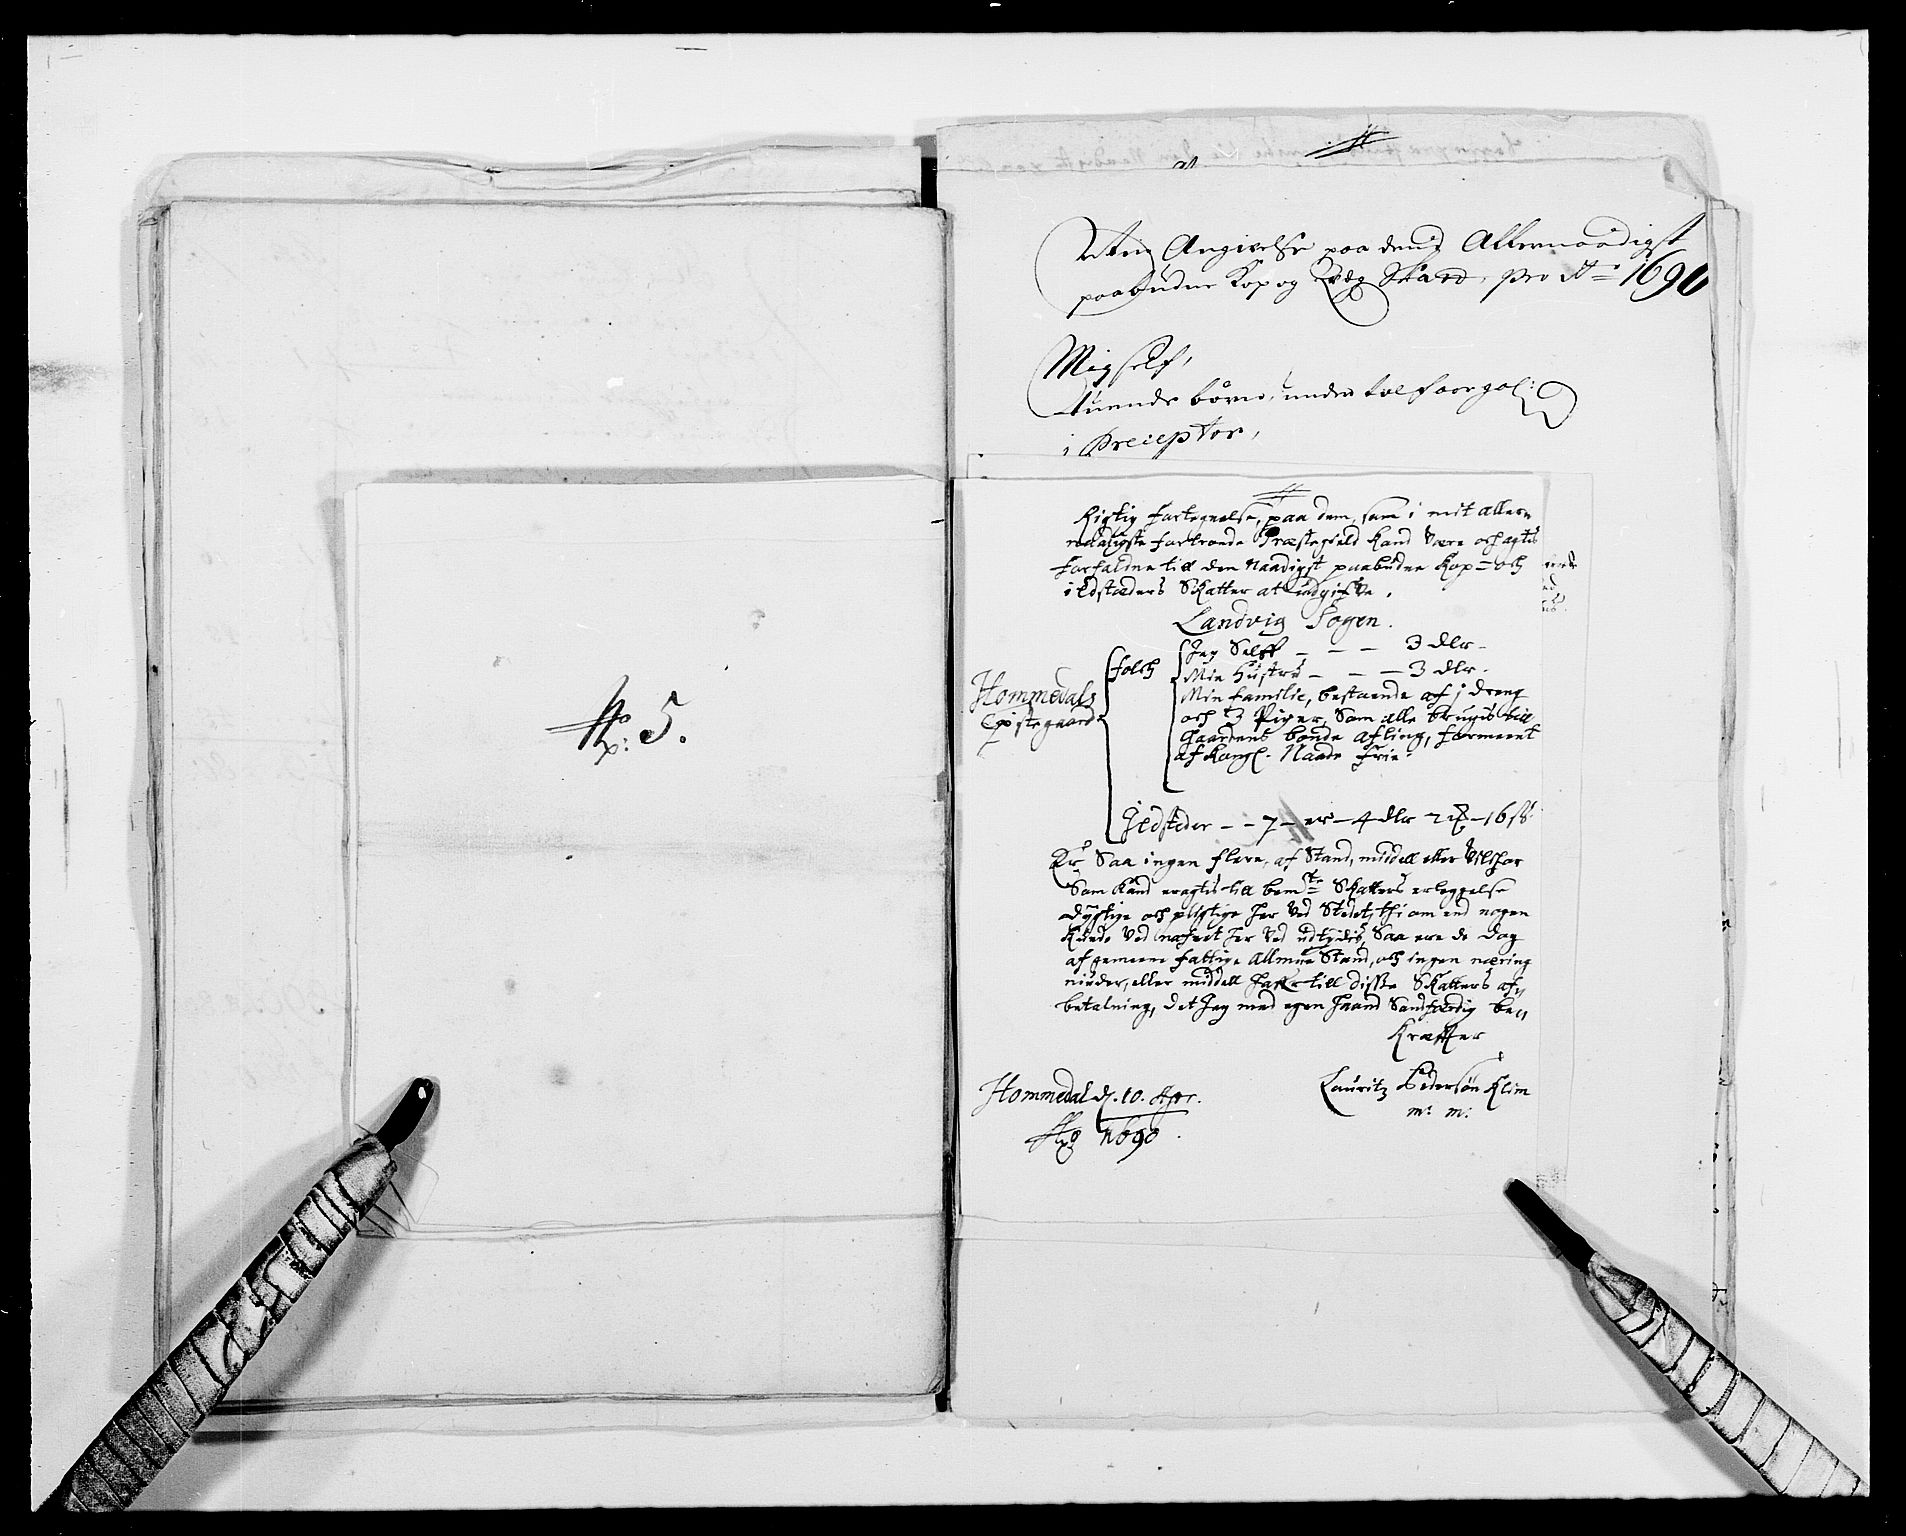 No: 5.
Angivelse paa den Allernaadigst
paabudne Kop og Qvæg Skatt, pro Ao 1690
Mig self,
tuende børn, under tolf aar gol:
1 Preceptor,
Rigtig fortegnelse, paa dem, som i mit allern
naadigste fortroede Præstegield kand være och agtis
forfaldne till den Naadigst paabudne Kop= och
ildstæders Skatter at udgifve.
Landvig Sogn.
Hommedals
Præstegaard
folch
Jeg Selff - - - 3 dlr -
Min Hustru - - - 3 dlr.
Min familie, bestaaende af 1 dreng
och 3 Piger, Som alle brugis till
Gaardens bonde afling, formeent
af Kongl. Naade frie.
Ildsteder - - 7 - er - 4 dlr 2 - 16 s:
Er Saa ingen flere, af Stand, middell eller Vilchor
Som kand eragtis till bemte Skatters erleggelse
dygtige och pligtige her ved Stedet, thi om end nogen
kunde ved nafnet her ved udtydis, Saa ere de dog
af gemeene fattige Allmue Stand, och ingen næring
niuder, eller middell hafver till disse Skatters af,,
betalning, det Jeg med egen haand Sandferdig be,,
kræffter
Hommedal d. 10. Apr.
Ao 1690.
Lauritz Pedersøn Klim
m: m: